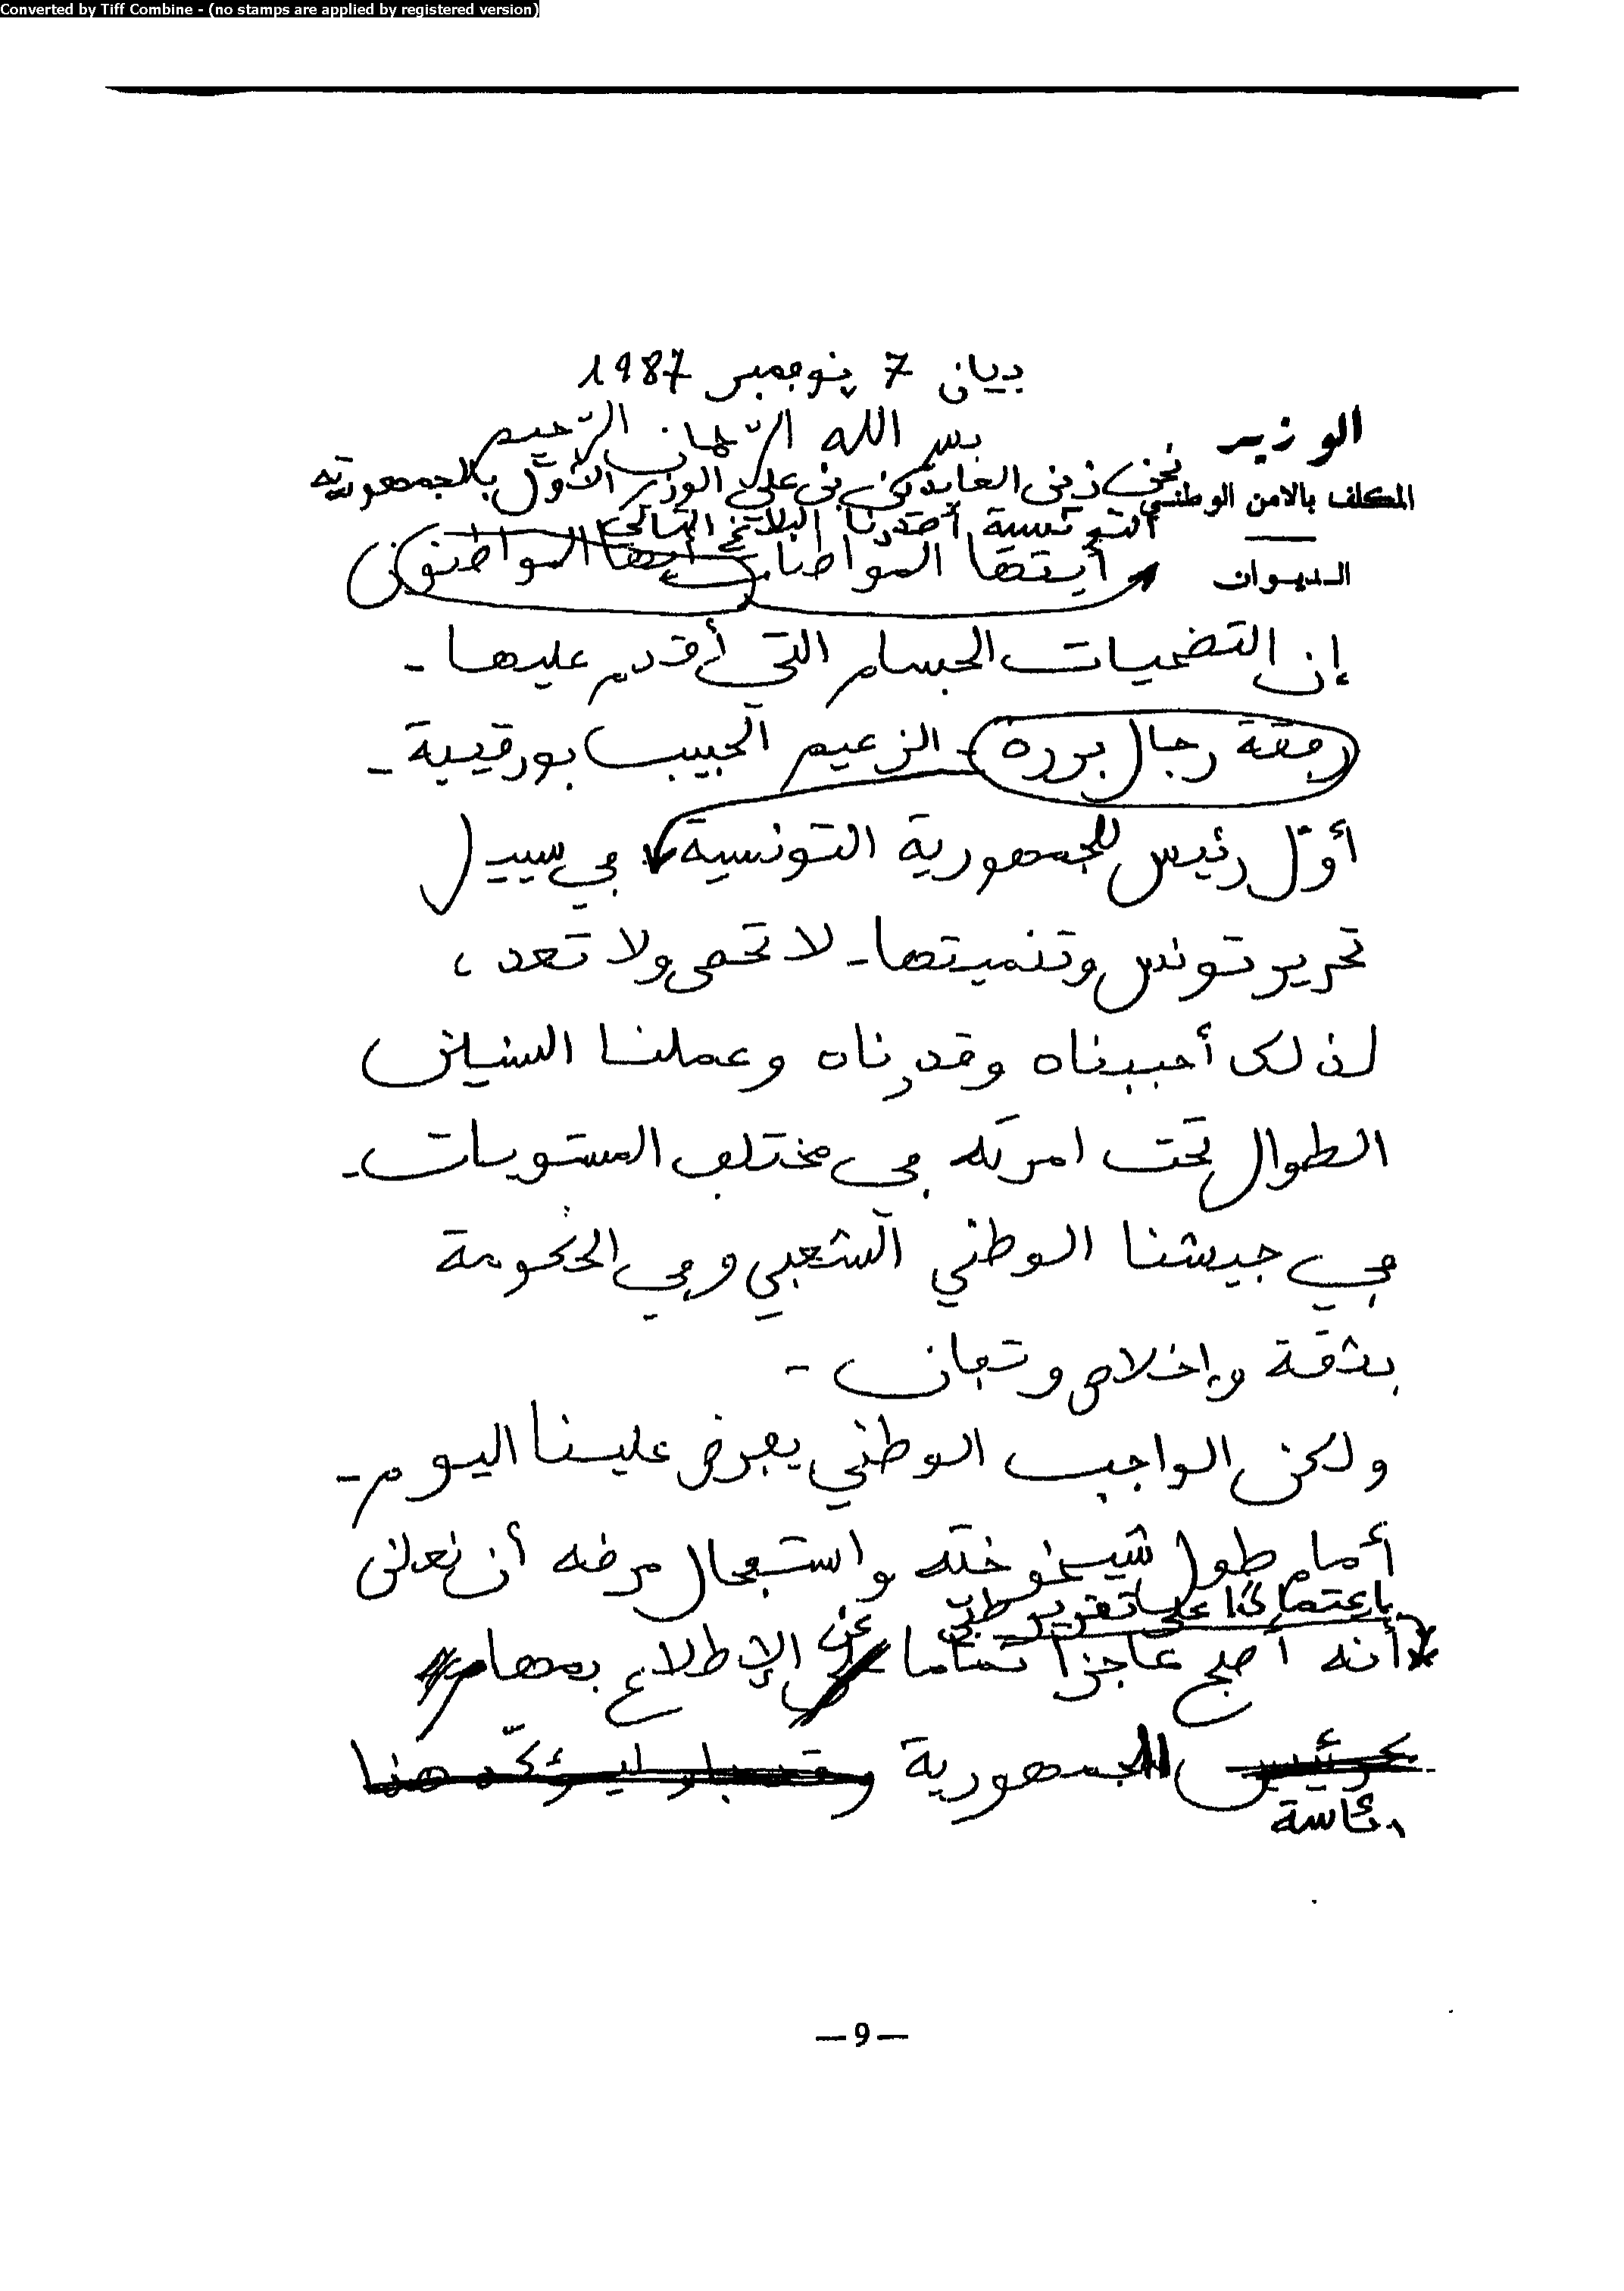 Converted by Tiff Combine - (no stamps are applied by registered version)
بيان 7 نوفمبر 1987
بسم الله الرّحمان الرّحيم
الوزير
نحن زين العابدين بن علي الوزير الأوّل بالجمهورية
المكلف بالامن الوطني
التونسية أصدرنا البلاغ التالي
أيّتها المواطنات أيها المواطنون
الديوان
إن التضحيات الجسام التي أقدم عليها -
رفقة رجال بررة - الزعيم الحبيب بورقيبة -
أوّل رئيس للجمهورية التونسية في سبيل
تحرير تونس وتنميتها - لا تحصى ولا تعد ،
لذلك أحببناه وقدرناه وعملنا السنين
الطوال تحت امرته في مختلف المستويات -
في جيشنا الوطني الشعبي وفي الحكومة
بثقة وإخلاص وتفان -
ولكن الواجب الوطني يفرض علينا اليوم -
أمام طول شيخوخته واستفحال مرضه أن نعلن
باعتمادًا على تقرير طبّي
أنه أصبح عاجزا تماما عن الإطلاع بمهام
كرئيس الجمهورية وقسبار ليؤكّد هنا
رئاسة
— 9 —